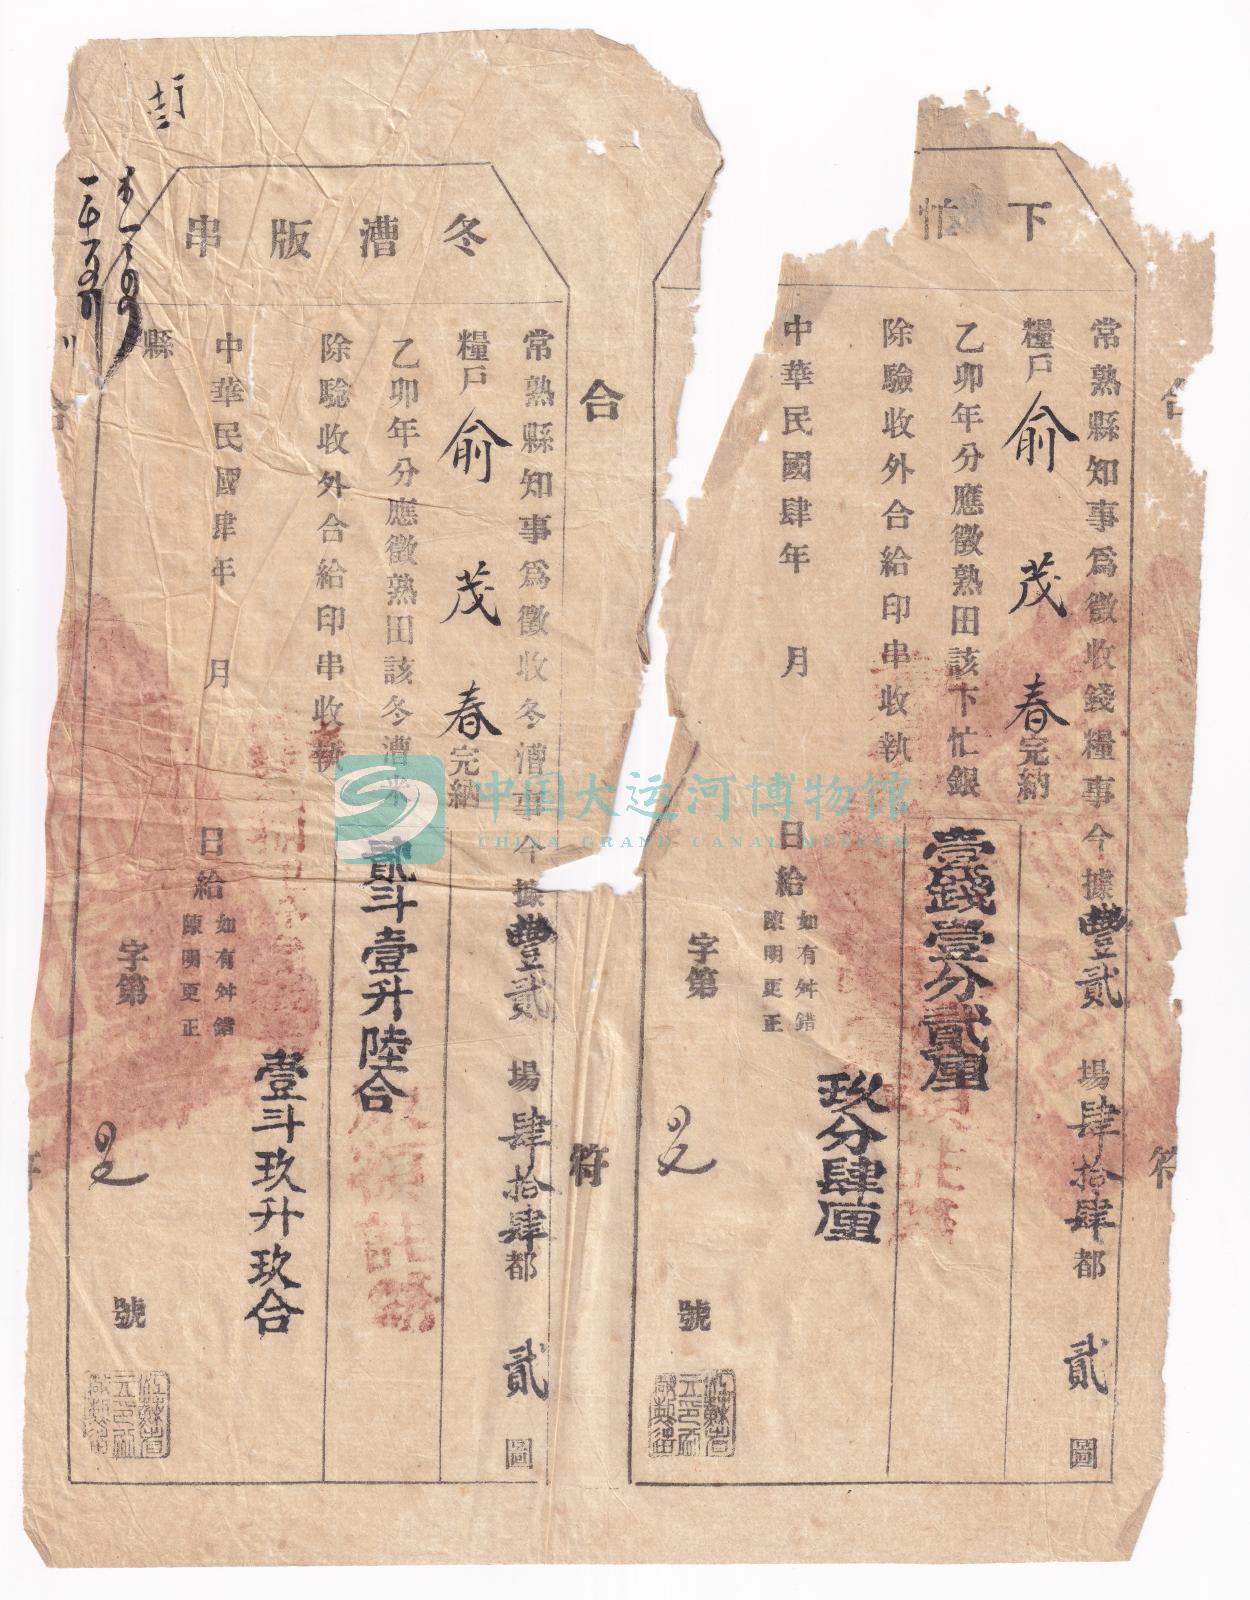 下忙
常熟縣知事爲徵收錢糧事今據豐貳場肆拾肆都貳圖
糧戶俞茂春完納
乙卯年分應徵熟田該下忙銀壹錢壹分貳厘
除驗收外合給印串收執
玖分肆厘
中華民國肆年 月 日給
如有舛錯
陳明更正
字第 號
合
符
冬漕版串
常熟縣知事爲徵收冬漕事今據豐貳場肆拾肆都貳圖
糧戶俞茂春完納
乙卯年分應徵熟田該冬漕米貳斗壹升陸合
除驗收外合給印串收執
壹斗玖升玖合
中華民國肆年 月 日給
如有舛錯
陳明更正
縣 字第 號
合
符
中国大运河博物馆
CHINA GRAND CANAL MUSEUM